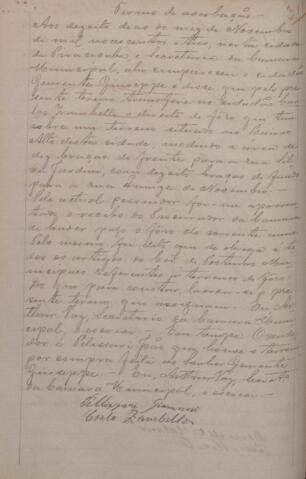 Termo de averbação.
Aos dezoito dias do mez de Novembro
de mil novecentos e tres, nesta cidade
de Piracicaba e Secretaria da Camara
Municipal, ahi compareceu o cidadão
Gemente Giuseppe e disse que pelo pre-
sente termo transferia ao cidadão Car-
los Zambello o direito de fôro que tem
sobre um terreno situado no Bairro
Alto desta cidade, medindo a área de
dez braças de frente para a rua
do Jardim, com dezoito braças de fundo
para a rua Quinze de Novembro.
Pelo actual possuidor foi-me apresen-
tado o recibo do Procurador da Camara
de haver pago o fôro do corrente anno.
Pelo mesmo foi dito que se obriga a to-
dos os artigos do Cod. de Posturas Mu-
nicipaes referentes a terrenos de fôro.
Do que para constar, lavrou-se o pre-
sente termo, que assignam. Eu, Ar-
thur Vaz, Secretario da Camara Muni-
cipal, o escrevi. Em tempo: O
é Pelissari
por compra feita ao Senhor Gemente
Giuseppe. Eu, Arthur Vaz, Secretº
da Camara Municipal, o escrevi.
Pellissari Giovanni
Carlo Zambello